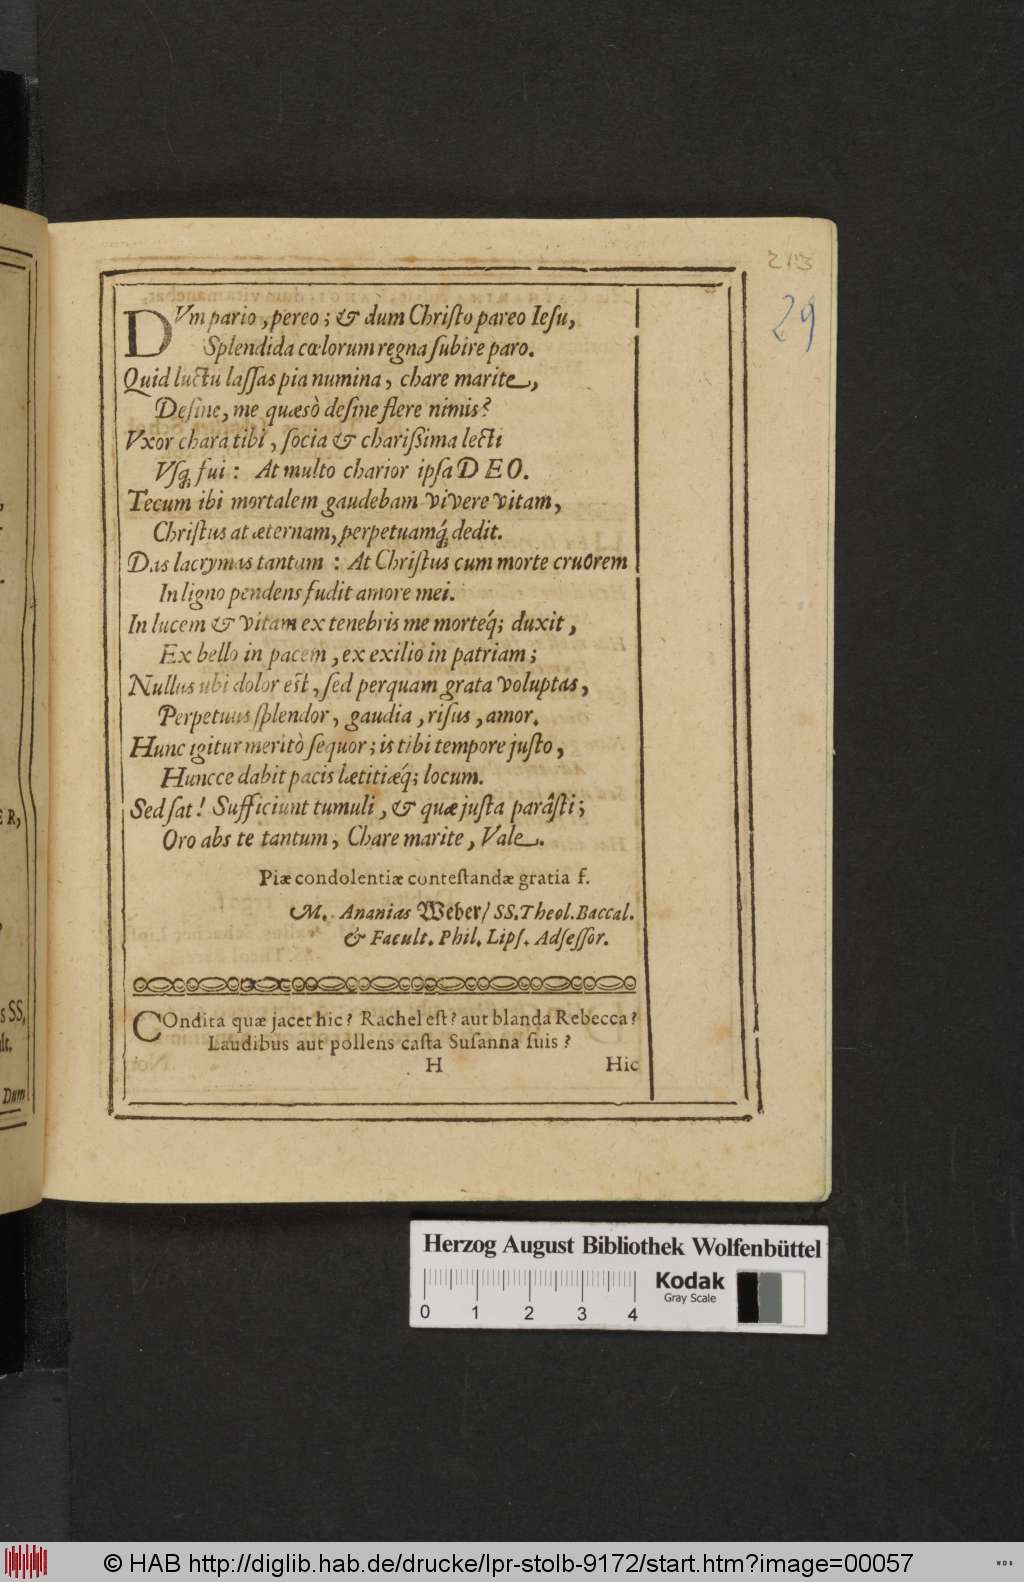 213
29
DVm pario, pereo; & dum Chriſto pareo Ieſu,
Splendida cœlorum regna ſubire paro.
Quid luctu laſſas pia numina, chare marite,
Deſine, me quæsò deſine flere nimis?
Vxor chara tibi, ſocia & charißima lecti
Vſq; fui: At multo charior ipſa DEO.
Tecum ibi mortalem gaudebam vivere vitam,
Chriſtus at æternam, perpetuamq́; dedit.
Das lacrymas tantum: At Chriſtus cum morte cruorem
In ligno pendens fudit amore mei.
In lucem & vitam ex tenebris me morteq́; duxit,
Ex bello in pacem, ex exilio in patriam;
Nullus ubi dolor eſt, ſed perquam grata voluptas,
Perpetuus ſplendor, gaudia, riſus, amor.
Hunc igitur meritò ſequor; is tibi tempore juſto,
Huncce dabit pacis lætitiæq́; locum.
Sed ſat! Sufficiunt tumuli, & quæ juſta parâſti;
Oro abs te tantum, Chare marite, Vale.
Piæ condolentiæ conteſtandæ gratia f.
M. Ananias Weber/ SS. Theol. Baccal.
& Facult. Phil. Lipſ. Adſeſſor.
COndita quæ jacet hic? Rachel eſt? aut blanda Rebecca?
Laudibus aut pollens caſta Suſanna ſuis?
H Hic
E R,
s SS,
lt.
Dum
Herzog August Bibliothek Wolfenbüttel
0 1 2 3 4
Kodak
Gray Scale
© HAB http://diglib.hab.de/drucke/lpr-stolb-9172/start.htm?image=00057
WDB